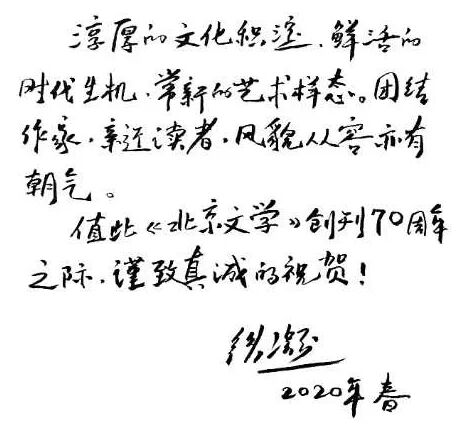 淳厚的文化积淀、鲜活的
时代生机、常新的艺术样态。团结
作家、亲近读者、风貌从容亦有
朝气。
值此《北京文学》创刊70周年
之际、谨致真诚的祝贺!
铁凝
2020年春